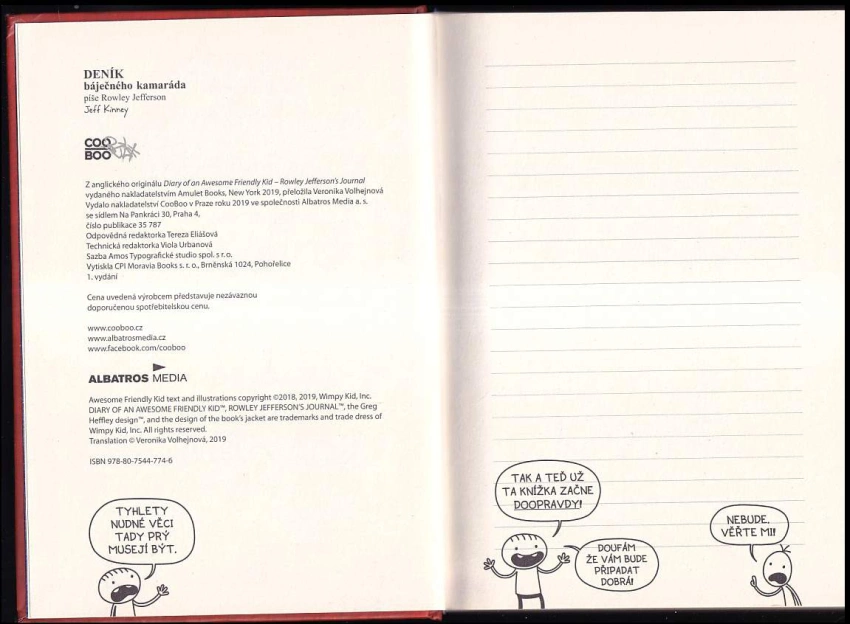 DENÍK
báječného kamaráda
píše Rowley Jefferson
Jeff Kinney
COO
BOO
Z anglického originálu Diary of an Awesome Friendly Kid – Rowley Jefferson's Journal
vydaného nakladatelstvím Amulet Books, New York 2019, přeložila Veronika Volhejnová
Vydalo nakladatelství CooBoo v Praze roku 2019 ve společnosti Albatros Media a. s.
se sídlem Na Pankráci 30, Praha 4,
číslo publikace 35 787
Odpovědná redaktorka Tereza Eliášová
Technická redaktorka Viola Urbanová
Sazba Amos Typografické studio spol. s r. o.
Vytiskla CPI Moravia Books s. r. o., Brněnská 1024, Pohořelice
1. vydání
Cena uvedená výrobcem představuje nezávaznou
doporučenou spotřebitelskou cenu.
www.cooboo.cz
www.albatrosmedia.cz
www.facebook.com/cooboo
ALBATROS MEDIA
Awesome Friendly Kid text and illustrations copyright ©2018, 2019, Wimpy Kid, Inc.
DIARY OF AN AWESOME FRIENDLY KID™, ROWLEY JEFFERSON'S JOURNAL™, the Greg
Heffley design™, and the design of the book's jacket are trademarks and trade dress of
Wimpy Kid, Inc. All rights reserved.
Translation © Veronika Volhejnová, 2019
ISBN 978-80-7544-774-6
TYHLETY
NUDNÉ VĚCI
TADY PRÝ
MUSEJÍ BÝT.
TAK A TEĎ UŽ
TA KNÍŽKA ZAČNE
DOOPRAVDY!
DOUFÁM
ŽE VÁM BUDE
PŘIPADAT
DOBRÁ!
NEBUDE,
VĚŘTE MI!